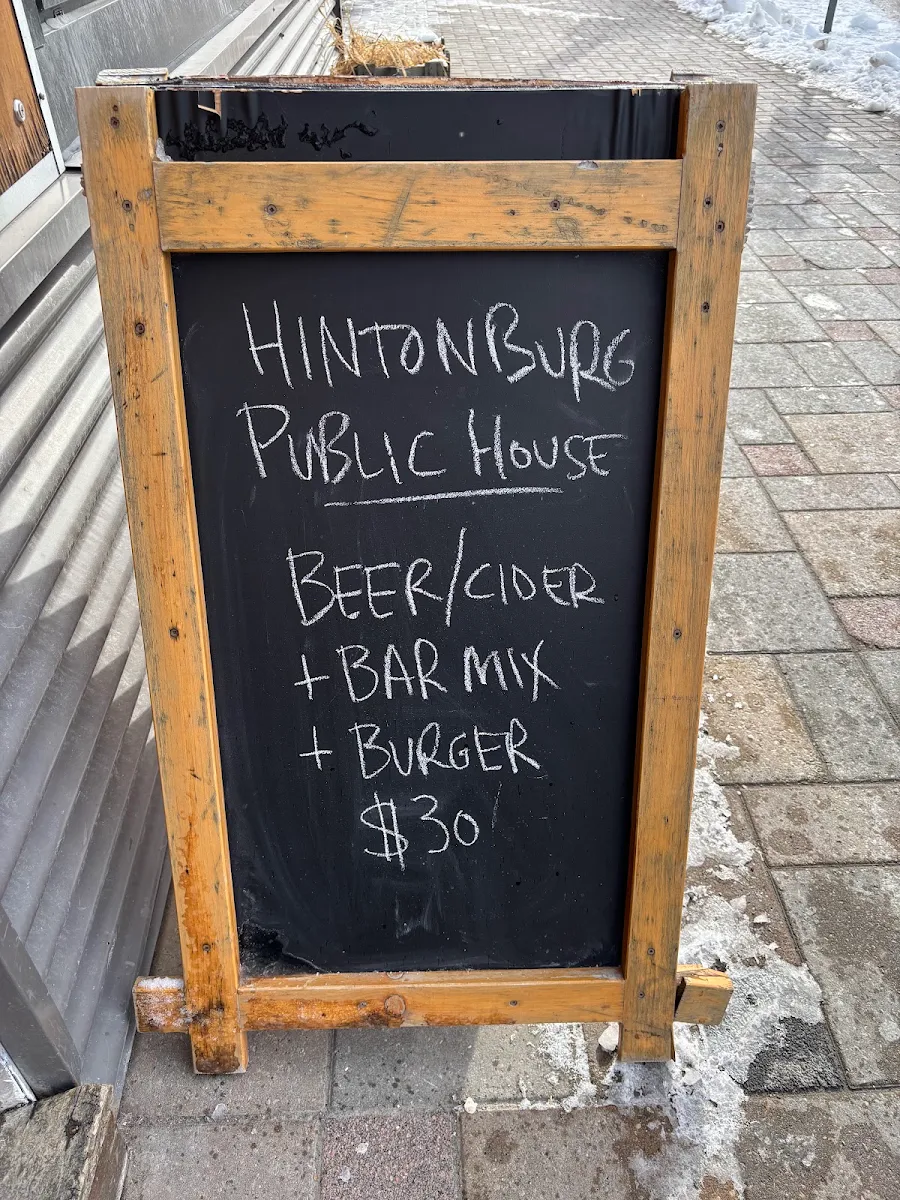 HINTONBURG
PUBLIC HOUSE
BEER/CIDER
+ BAR MIX
+ BURGER
$30